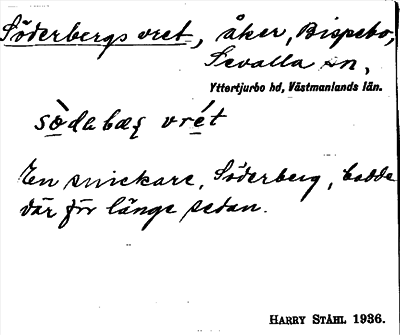 Söderbergs vret, åker, Bispebo,
Sevalla sn,
Yttertjurbo hd, Västmanlands län.
sòdabæʂ vrét
En snickare, Söderberg, bodde
där för länge sedan.
HARRY STÅHL 1936.